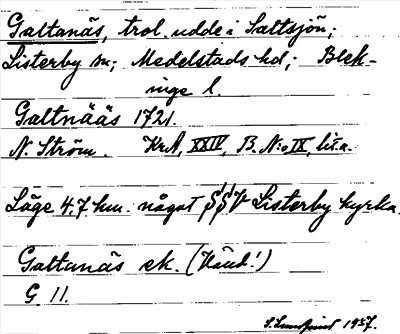 Galtanäs, trol. udde i Saltsjön;
Listerby sn; Medelstads hd; Blek-
inge l.
Galtnääs 1721.
N. Ström. KrA, XXIV, B. N:o IX, lit. a.
Läge 4.7 km. något SSV Listerby kyrka.
Galtanäs ek. (Känd!)
G. 11.
S. Lundquist 1937.